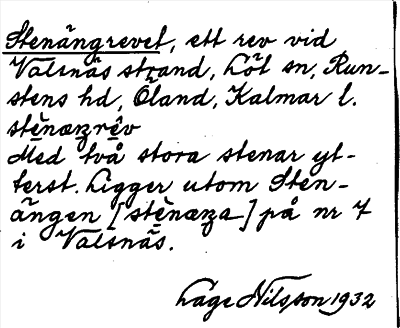 Stenängrevet, ett rev vid
Valsnäs strand, Löt sn, Run-
stens hd, Öland, Kalmar l.
stènæŋrêv
Med två stora stenar yt-
terst. Ligger utom Sten-
ängen [stènæŋa] på nr 7
i Valsnäs.
Låge Nilsson 1932